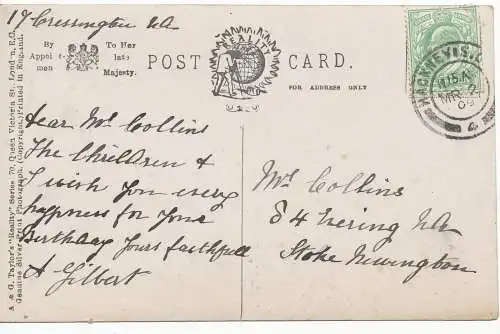 17 Cressington Rd
By
Appoint
ment
To Her
late
Majesty.
POST CARD.
REALITY
FOR ADDRESS ONLY
HACKNEY S.O.
11 15 A
MR 2
09
4
Dear Mrs Collins
The Children &
I wish you every
happiness for your
Birthday Yours faithfull
A Gilbert
Mrs Collins
84 Evering Rd
Stoke Newington
A. & G. Taylor's "Reality" Series 70, Queen Victoria St. London, E.C.
Genuine Silver Print Photograph. (Copyright.) Printed in England.